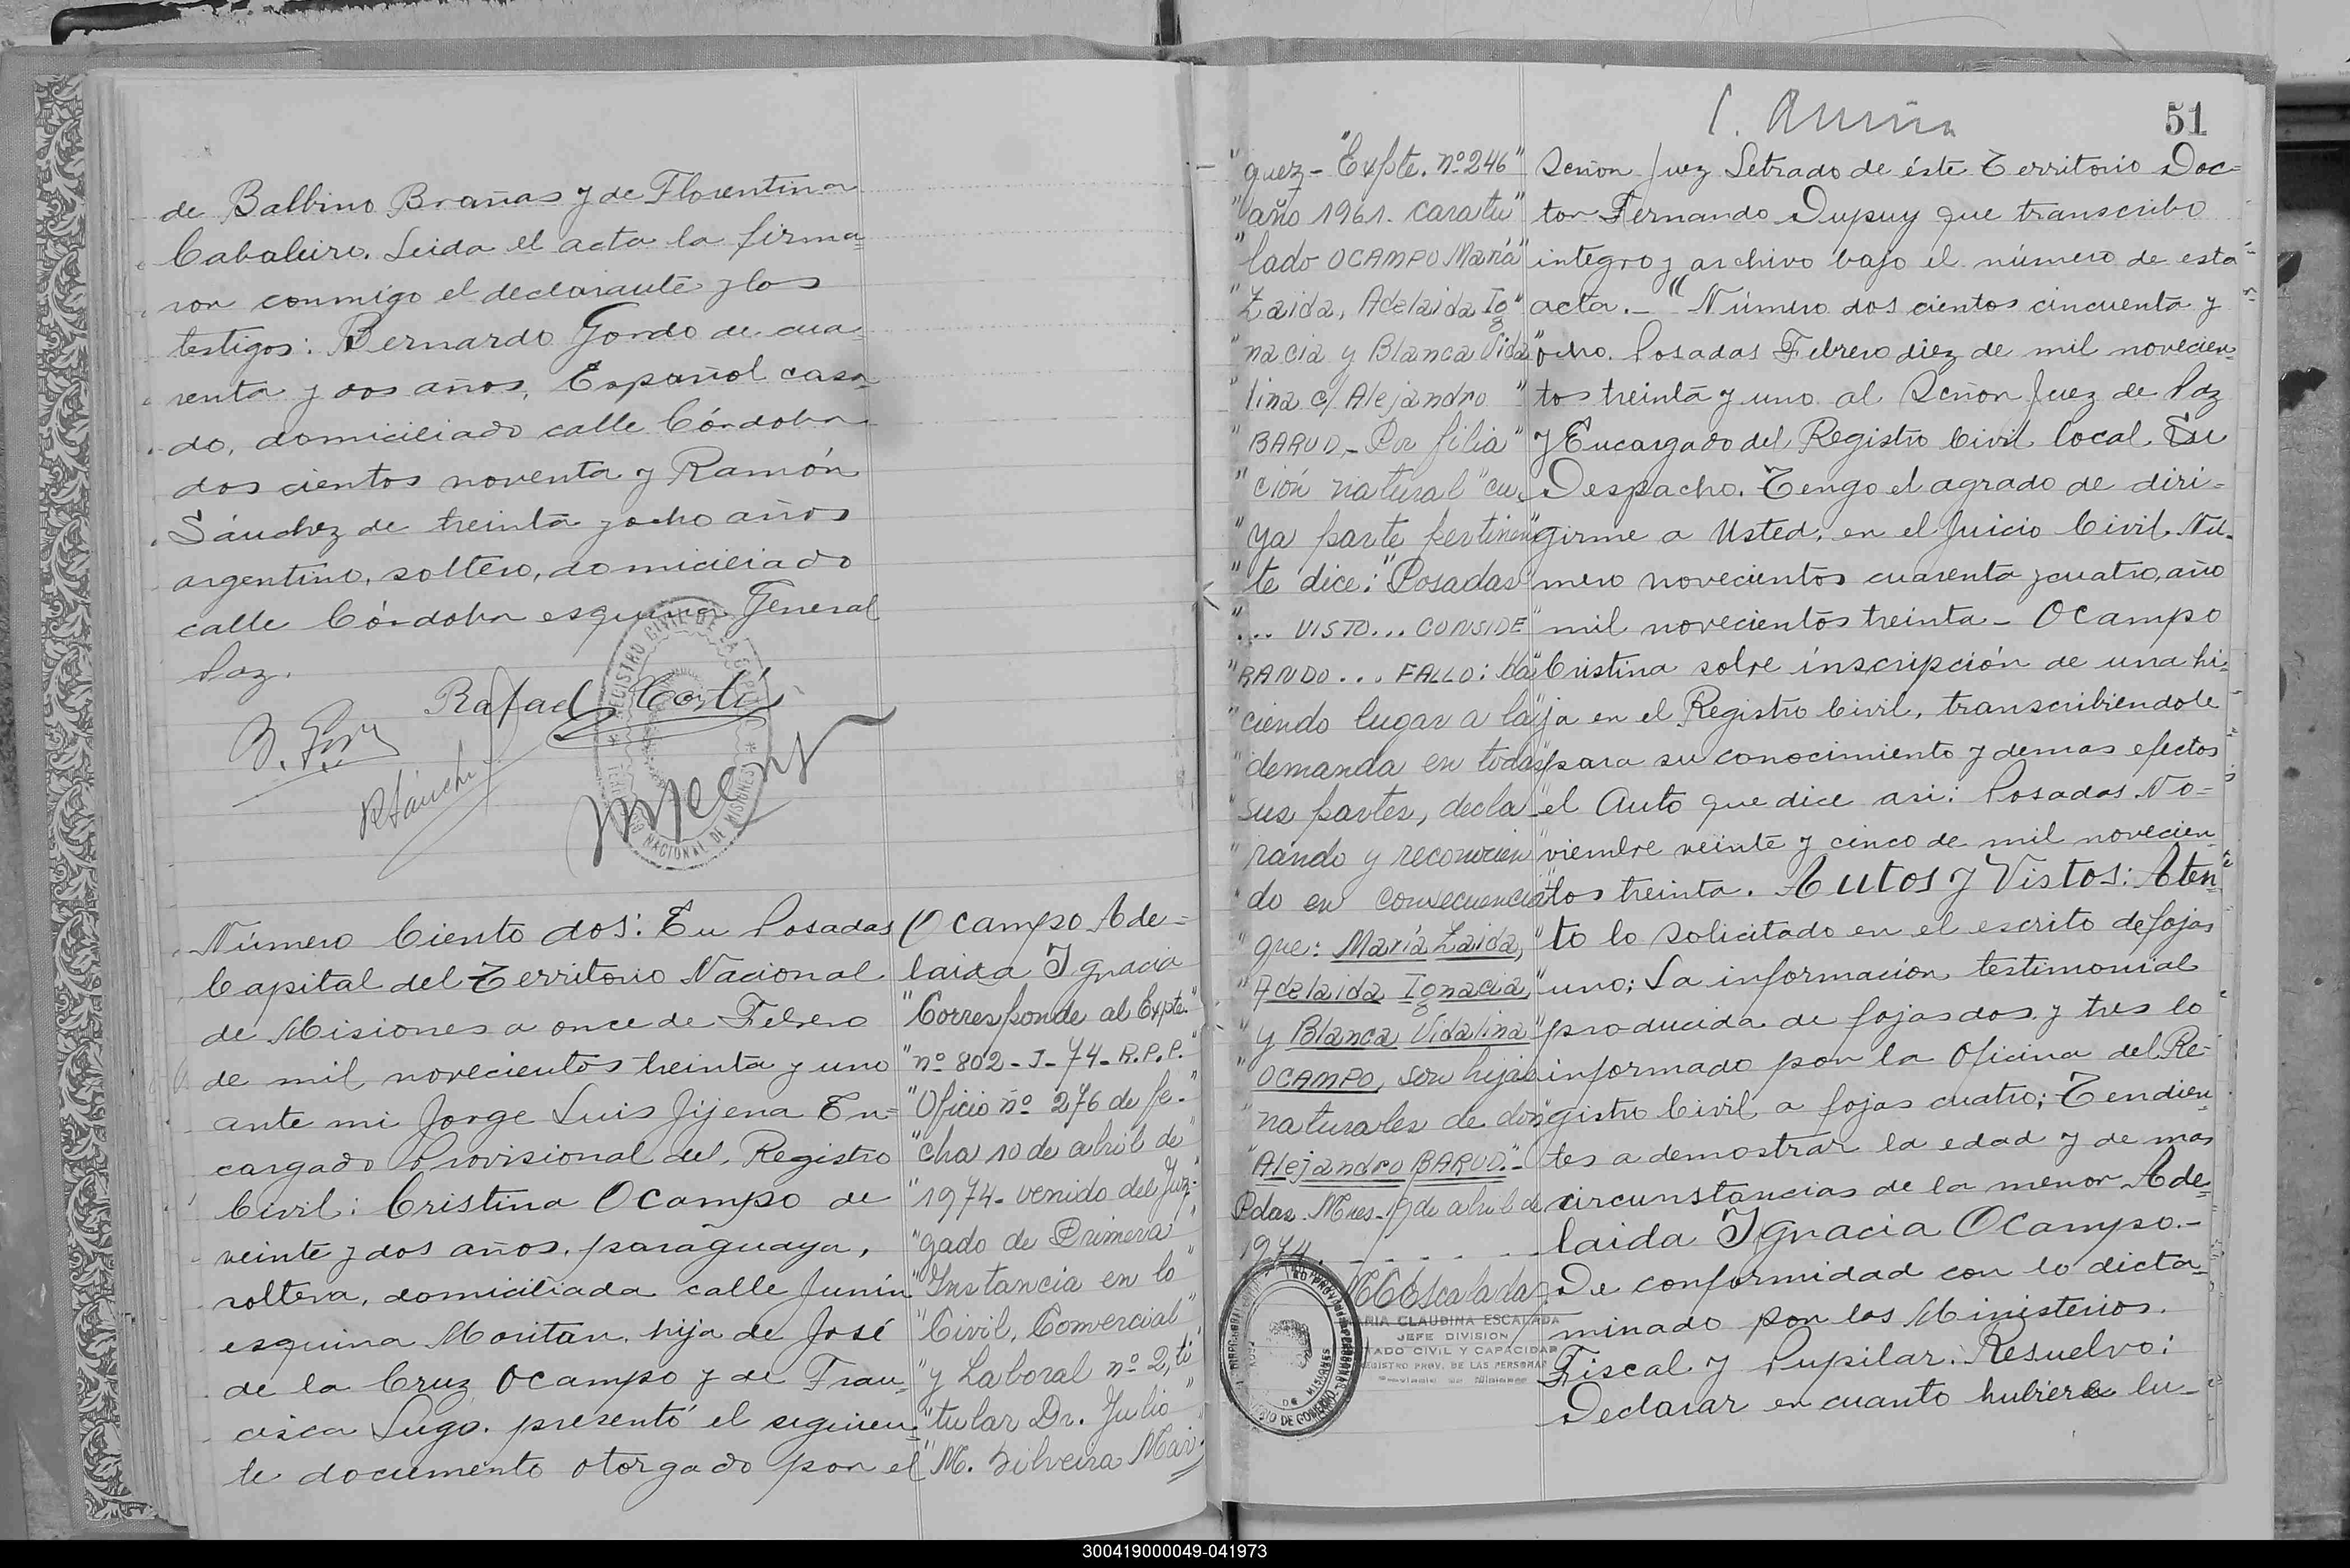 de Balbino Brañas y de Florentina
Cabaleiro. Leida el acta la firma-
ron conmigo el declarante y los
testigos: Bernardo Gondo de cua-
renta y dos años, Español casa-
do, domiciliado calle Córdoba
dos cientos noventa y Ramón
Sánchez de treinta y ocho años
argentino, soltero, domiciliado
calle Córdoba esquina General
Paz.
Rafael Cortí
R Sánchez
REGISTRO CIVIL DE LA CAPITAL
NACIONAL DE MISIONES
Número Ciento dos: En Posadas
Capital del Territorio Nacional
de Misiones a once de Febrero
de mil novecientos treinta y uno
ante mi Jorge Luis Jijena En-
cargado Provisional del Registro
Civil: Cristina Ocampo de
veinte y dos años, paraguaya,
soltera, domiciliada calle Junín
esquina Moritan, hija de José
de la Cruz Ocampo y de Fran-
cisca Lugo. presentó el siguien-
te documento otorgado por el
Ocampo Ade-
laida Ignacia
"Corresponde al Expte."
"nº 802-J-74-R.P.P."
"Oficio nº 276 de fe-"
"cha 10 de abril de"
"1974- venido del Juz-"
"gado de Primera"
"Instancia en lo"
"Civil, Comercial"
"y Laboral nº 2, ti"
"tular Dr. Julio
"M. Silveira Már-
51
"quez- "Expte. nº 246"
"año 1961. caratu"
"lado OCAMPO María"
"Zaida, Adelaida Ig"
"nacia y Blanca Vida
"lina c/ Alejandro "
"BARUD,- Por filia"
"ción natural" cu-
"ya parte pertinen"
"te dice: "Posadas
"... VISTO... CONSIDE"
"RANDO... FALLO: Ha"
"ciendo lugar a la"
"demanda en todas"
sus partes, decla"
"rando y reconocien"
"do en consecuencia"
"que: María Zaida,"
"Adelaida Ignacia,"
"y Blanca Vidalina"
"OCAMPO, son hijas
"naturales de don"
"Alejandro BARUD."-
Pdas. Mnes. 19 de abril de
1974. - - - - -
MCEscalada
MARIA CLAUDINA ESCALADA
JEFE DIVISION
ESTADO CIVIL Y CAPACIDAD
REGISTRO PROV. DE LAS PERSONAS
Provincia de Misiones
Señor Juez Letrado de éste Territorio Doc-
tor Fernando Dupuy que transcribo
integro y archivo bajo el número de esta
acta.- "Número dos cientos cincuenta y
ocho. Posadas Febrero diez de mil novecien-
tos treinta y uno al Señor Juez de Paz
y Encargado del Registro Civil local. Su
Despacho. Tengo el agrado de diri-
girme a Usted, en el Juicio Civil. Nú-
mero novecientos cuarenta y cuatro, año
mil novecientos treinta - Ocampo
Cristina sobre inscripción de una hi-
ja en el Registro Civil, transcribiendole
para su conocimiento y demas efectos
el Auto que dice asi: Posadas No-
viembre veinte y cinco de mil novecien-
tos treinta. Autos y Vistos: Aten-
to lo solicitado en el escrito de fojas
uno; La información testimonial
producida de fojas dos y tres lo
informado por la Oficina del Re-
gistro Civil a fojas cuatro; Tendien-
tes a demostrar la edad y de mas
circunstancias de la menor Ade-
laida Ignacia Ocampo.-
De conformidad con lo dicta-
minado por los Ministerios.
Fiscal y Pupilar. Resuelvo:
Declarar en cuanto hubiere lu-
300419000049-041973